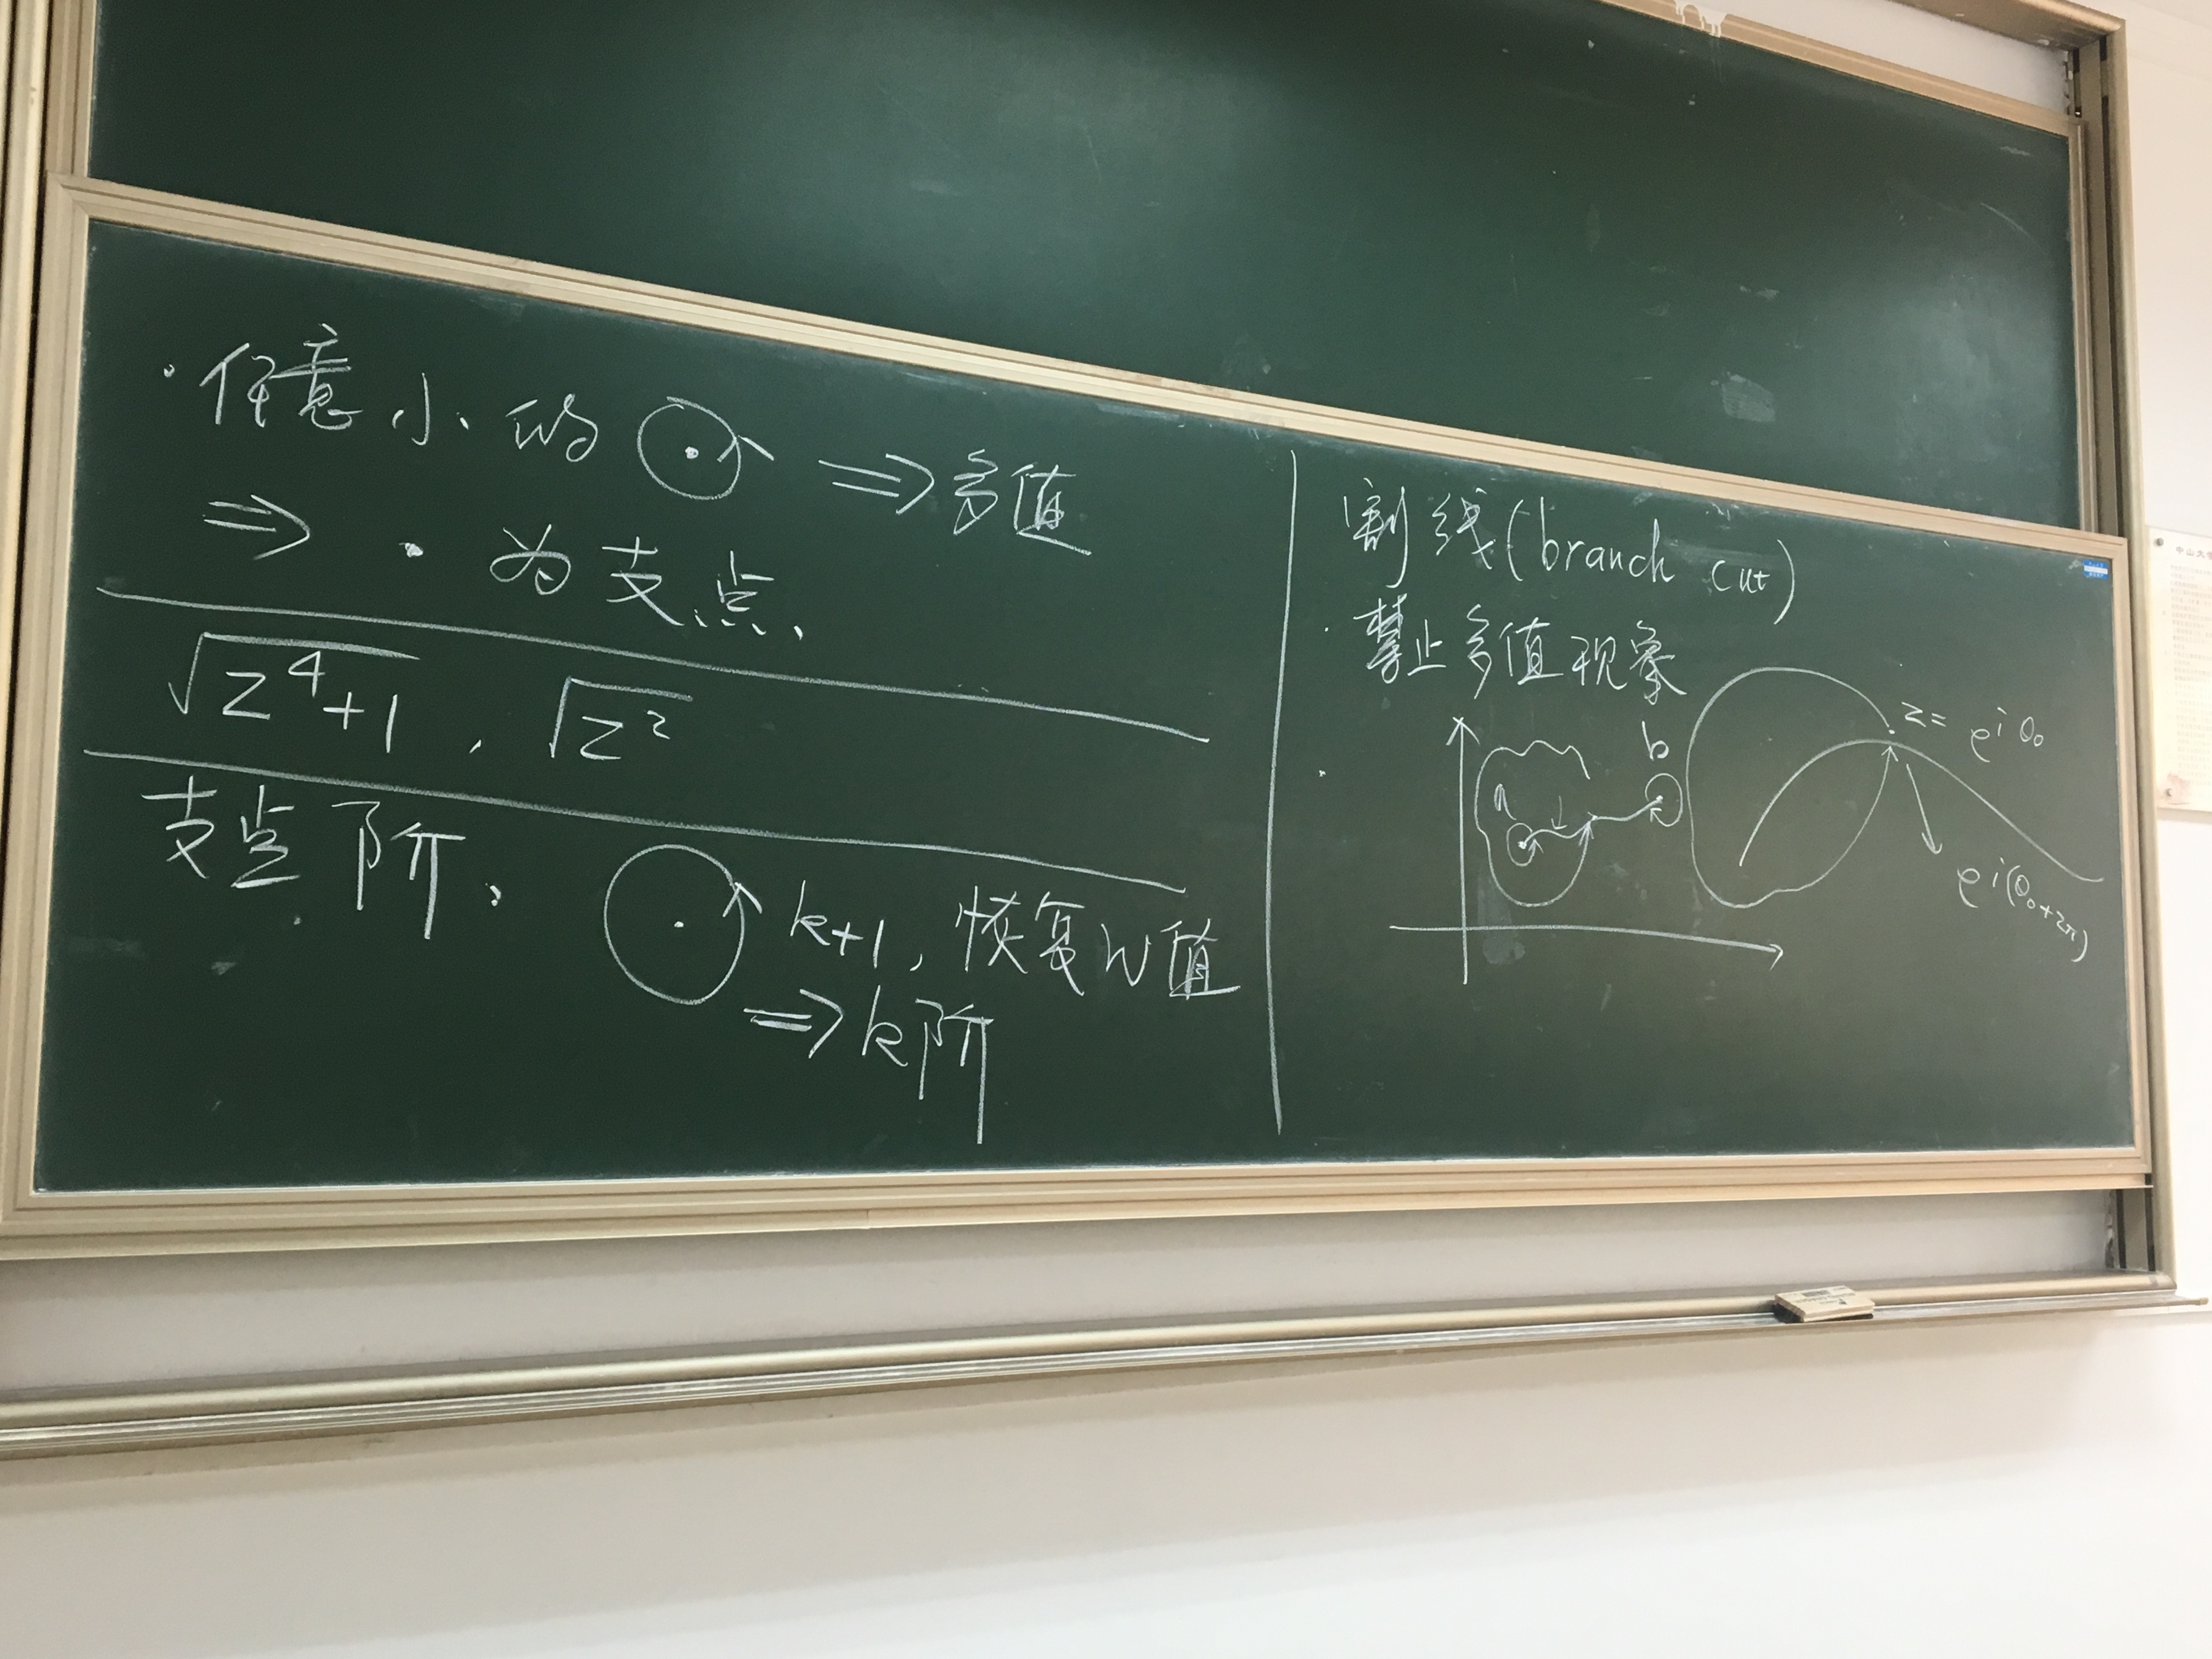 · 任意小的 ⇒ 多值
⇒ · 为支点.
√(z⁴+1) , √(z²)
支点阶.
k+1, 恢复w值
⇒ k阶
割线(branch cut)
· 禁止多值现象
b
z= e^{iθ₀}
a
e^{i(θ₀+2π)}
中山大